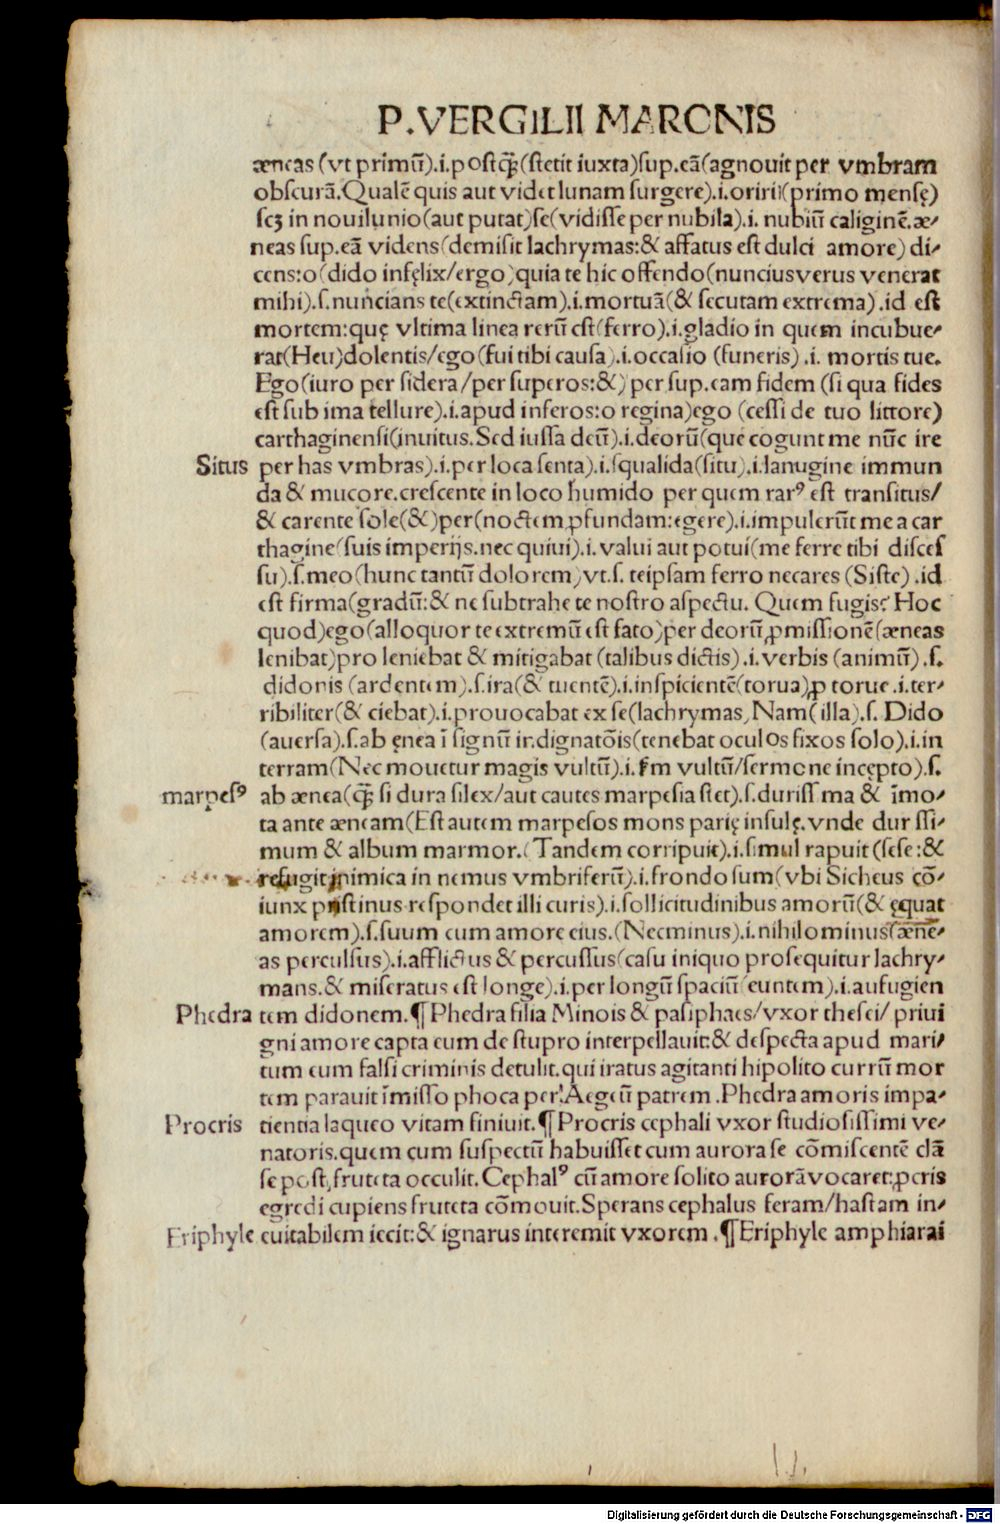 P. VERGILII MARONIS
æneas (vt primū).i.postq̄ꝫ(stetit iuxta)sup.eā(agnouit per vmbram
obscurā.Qualē quis aut videt lunam surgere).i.oriri(primo mensę)
scꝫ in nouilunio(aut putat)se(vidisse per nubila).i. nubiū caliginē.æ-
neas sup.eā videns(demisit lachrymas:& affatus est dulci amore) di-
cens:o(dido infęlix/ergo)quia te hic offendo(nuncius verus venerat
mihi).s.nuncians te(extinctam).i.mortuā(& secutam extrema).id est
mortem:quę vltima linea rerū est(ferro).i.gladio in quem incubue-
rat(Heu)dolentis/ego(fui tibi causa).i.occasio (funeris).i. mortis tue.
Ego(iuro per sidera/per superos:&)per sup.eam fidem (si qua fides
est sub ima tellure).i.apud inferos:o regina)ego (cessi de tuo littore)
carthaginensi(inuitus.Sed iussa deū).i.deorū(que cogunt me nūc ire
Situs per has vmbras).i.per loca senta).i.squalida(situ).i.lanugine immun
da & mucore.crescente in loco humido per quem rarꝰ est transitus/
& carente sole(&)per(noctem ꝓfundam:egere).i.impulerūt me a car
thagine(suis imperijs.nec quiui).i.valui aut potui(me ferre tibi disces
su).s.meo(hunc tantū dolorem)vt.s. teipsam ferro necares (Siste).id
est firma(gradū:& ne subtrahe te nostro aspectu. Quem fugis? Hoc
quod)ego(alloquor te extremū est fato)per deorū ꝓmissionē(æneas
lenibat)pro leniebat & mitigabat (talibus dictis).i.verbis (animū).s.
didonis (ardentem).s.ira(& tuentē).i.inspicientē(torua)ꝓ torue.i.ter-
ribiliter(& ciebat).i.prouocabat ex se(lachrymas,Nam(illa).s. Dido
(auersa).s.ab ęnea ī signū indignatōis(tenebat oculos fixos solo).i.in
terram(Nec mouetur magis vultū).i. ẜm vultū/sermone incępto).s.
marpesꝰ ab ænea(q̄ꝫ si dura silex/aut cautes marpesia stet).s.durissima & īmo-
ta ante æneam(Est autem marpesos mons parię insulę.vnde durissi-
mum & album marmor.(Tandem corripuit).i.simul rapuit(sese:&
refugit inimica in nemus vmbriferū).i.frondosum(vbi Sicheus cō-
iunx pristinus respondet illi curis).i.sollicitudinibus amorū(& ęquat
amorem).s.suum cum amore eius.(Necminus).i.nihilominus(ænē-
as perculsus).i.afflictus & percussus(casu iniquo prosequitur lachry-
mans.& miseratus est longe).i.per longū spaciū(euntem).i.aufugien
Phedra tem didonem.¶ Phedra filia Minois & pasiphaes/vxor thesei/ priui
gni amore capta eum de stupro interpellauit:& despecta apud mari-
tum eum falsi criminis detulit.qui iratus agitanti hipolito currū mor
tem parauit īmisso phoca per Aegeū patrem.Phedra amoris impa-
Procris tientia laqueo vitam finiuit.¶ Procris cephali vxor studiosissimi ve-
natoris.quem cum suspectū habuisset cum aurora se cōmiscentē clā
se post fruteta occulit.Cephalꝰ cū amore solito aurorā vocaret:ꝓcris
egredi cupiens fruteta cōmouit.Sperans cephalus feram/hastam in-
Eriphyle euitabilem iecit:& ignarus interemit vxorem.¶ Eriphyle amphiarai
Digitalisierung gefördert durch die Deutsche Forschungsgemeinschaft - DFG